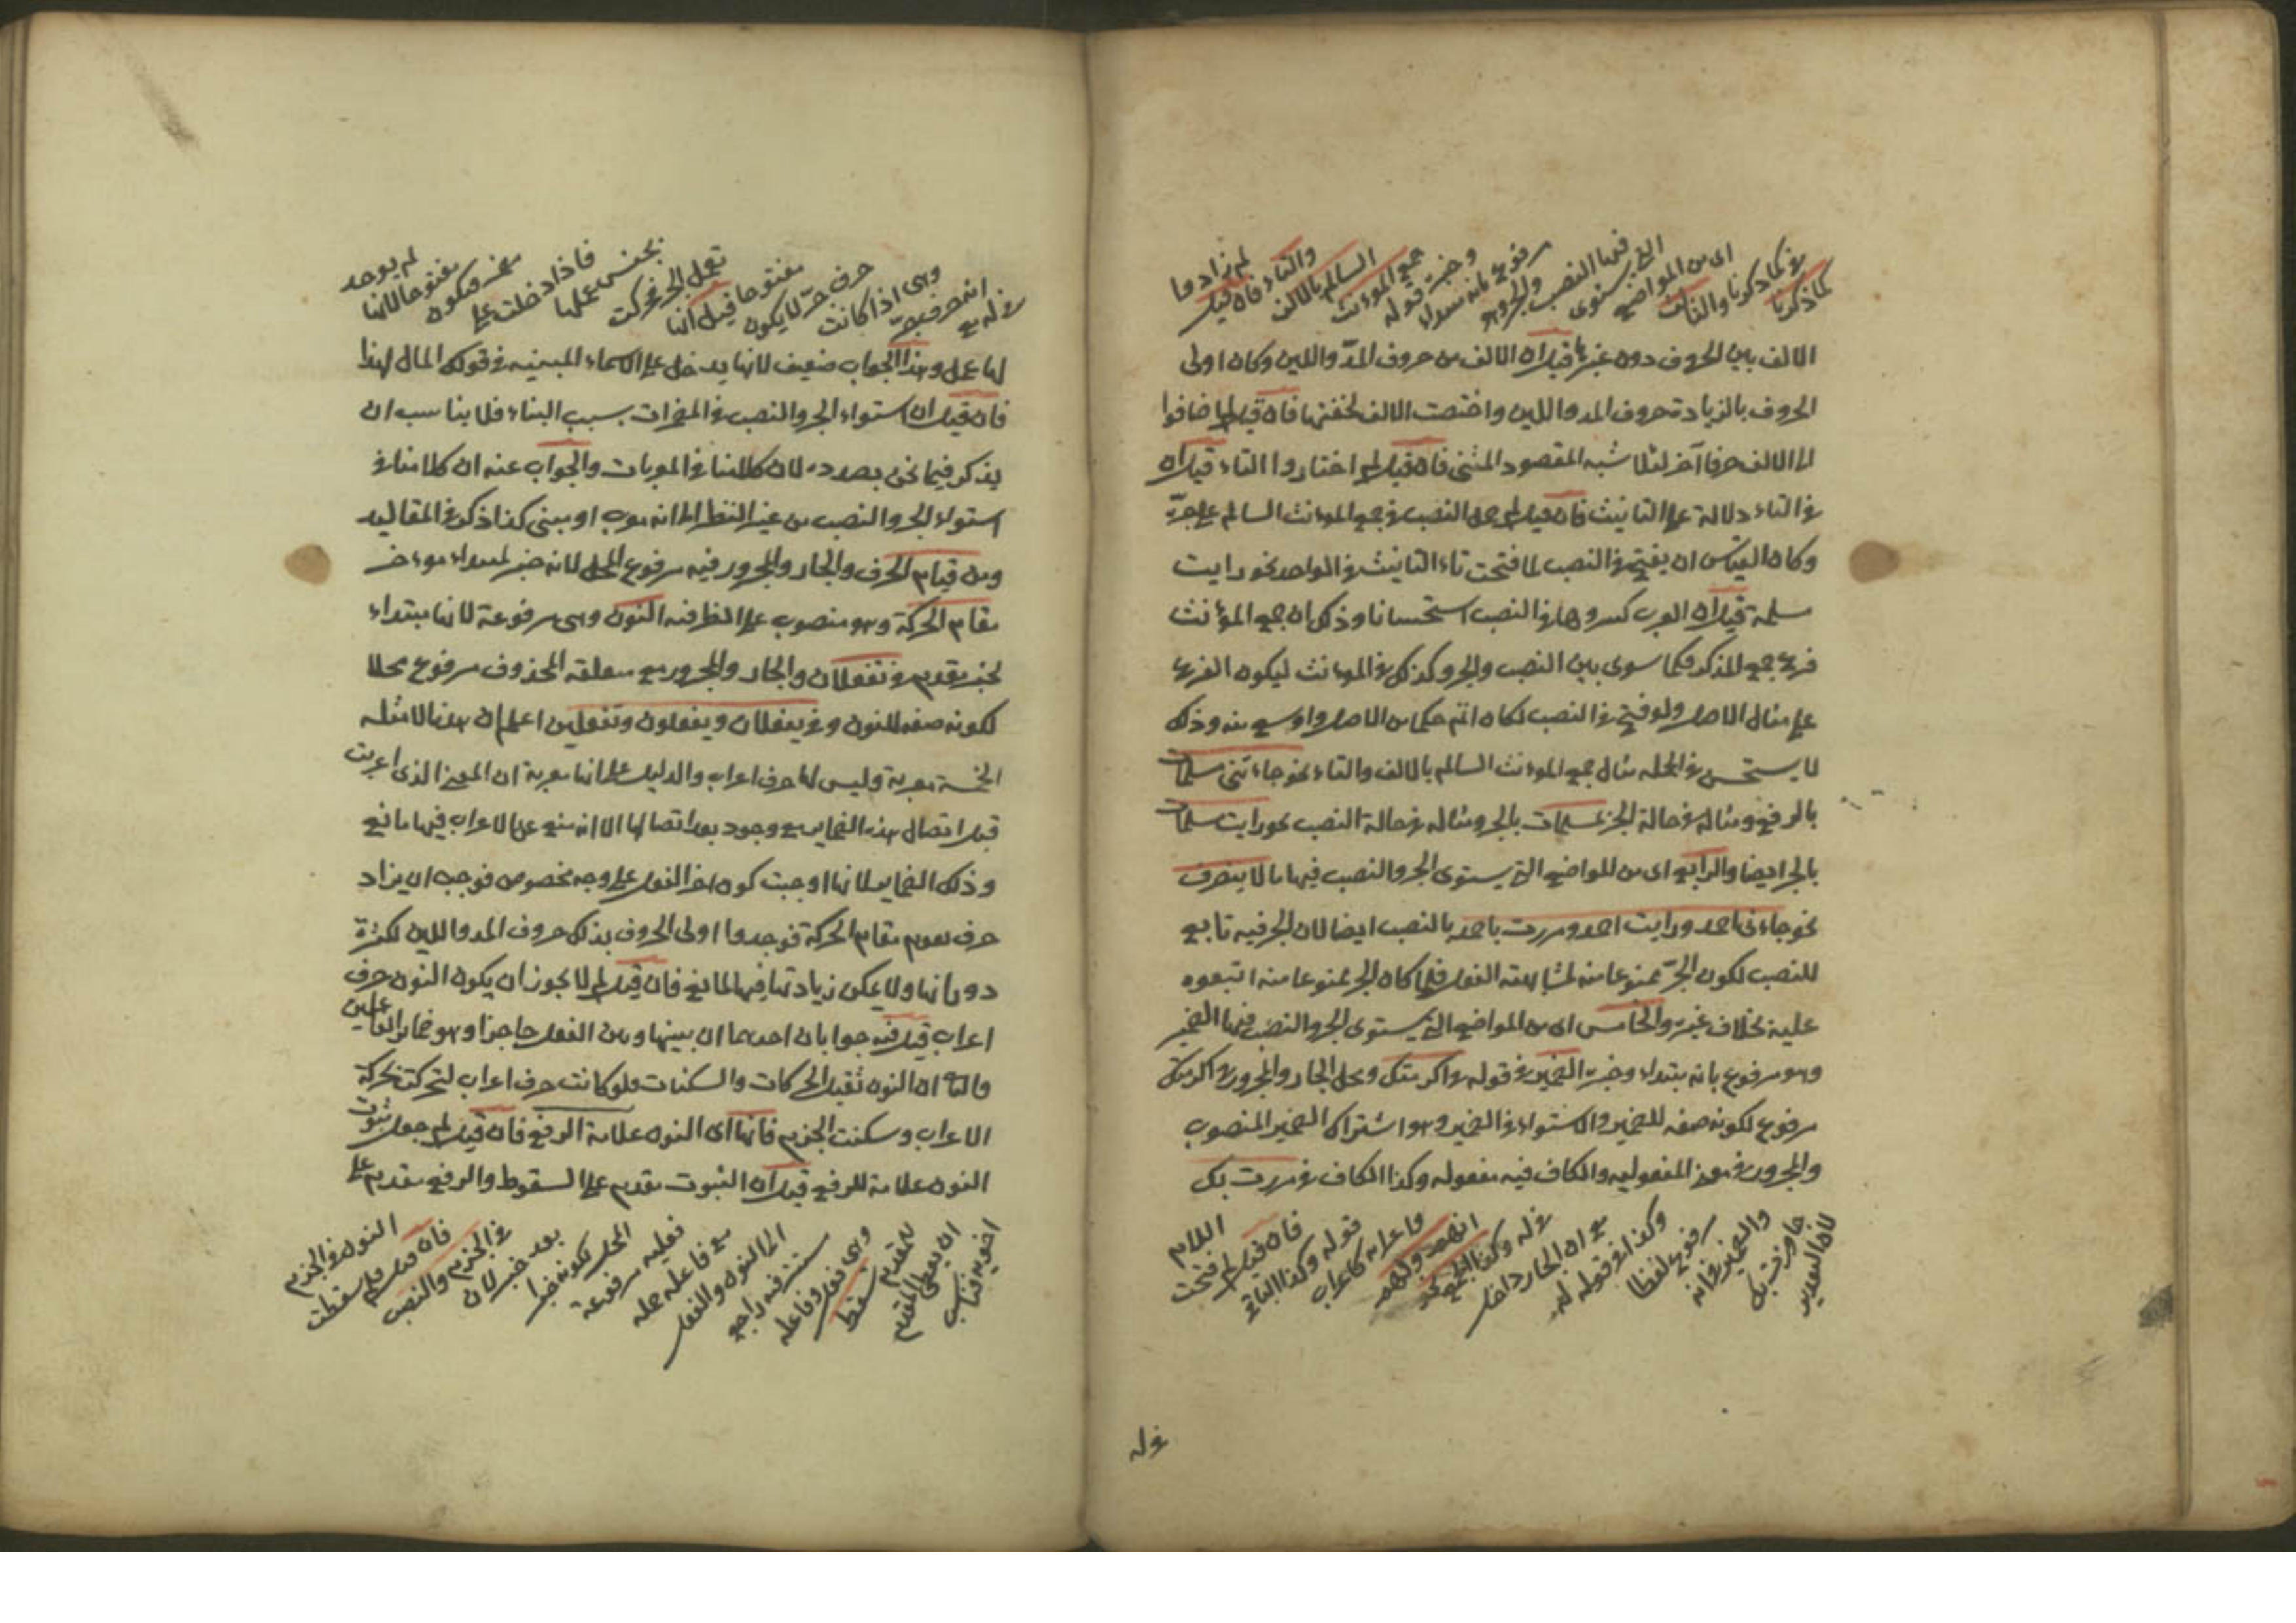 كما ذكرنا
في كما ذكرنا والثالث
اى من المواضع
التى يستوى
فيها النصب والجر وهو
مرفوع بانه مبتداء
وخبره قوله
جمع المؤنث
السالم بالالف
والتاء فان قيل
لم زادوا
الالف بين الحروف دون غيرها قيل ان الالف من حروف المدّ واللين وكان اولى
الحروف بالزيادة حروف المد واللين واختصت الالف لخفتها فان قيل لم اضافوا
الى الالف حرفا آخر لئلا شبه المقصود المثنى فان قيل لم اختاروا التاء قيل ان
في التاء دلالة على التانيث فان قيل لم حمل النصب في جمع المؤنث السالم على جرّه
وكان القياس ان يفتح في النصب لما فتحت تاء التانيث في الواحد نحو رايت
سلمة قيل ان العرب كسروها في النصب استحسانا وذلك ان جمع المؤنث
فرع جمع المذكر فكما سوى بين النصب والجر وكذلك في المؤنث ليكون الفرع
على مثال الاصل ولو فتح في النصب لكان اتم حكما من الاصل واوسع منه وذلك
لا يستحسن في الجمله مثال جمع المؤنث السالم بالالف والتاء نحو جاءتنى سلمات
بالرفع ومثاله في حالة الجر بمسلمات بالجر ومثاله في حالة النصب نحو رايت سلمات
بالجر ايضا والرابع اى من المواضع التى يستوى الجر والنصب فيها ما لا ينصرف
نحو جاءنى احمد ورايت احمد ومررت باحمد بالنصب ايضا لان الجر فيه تابع
للنصب لكون الجرّ ممنوعا منه لمشابهته الفعل فلما كان الجر ممنوعا منه اتبعوه
عليه بخلاف غيره والخامس اى من المواضع التى يستوى الجر والنصب فيها الضمير
وهو مرفوع بانه مبتداء وخبره الضمير في قوله في اكرمتك ومحل الجار والمجرور في اكرمتك
مرفوع لكونه صفه للضمير والاستواء في الضمير وهو اشتراك الضمير المنصوب
والمجرور في معنى المفعوليه والكاف فيه مفعوله وكذا الكاف في مررت بك
لان التقدير
جاوزت بك
والضمير في انه
مرفوع لفظا
وكذا في قوله له
مع ان الجار داخل
في له وكذا الجمع نحو
انهم ولهم
واعرابه كاعراب
قوله وكذا الباقى
فان قيل لم فتحت
اللام
في له
في له مع
انه حرف جرّ
وهى اذا كانت
حرف جرّ لا يكون
مفتوحا قيل انها
تعمل الجر فحركت
بجنس عملها
فاذا دخلت على
مضمر فيكون
مفتوحا لانها
لم يوجد
لها عمل وهذا الجواب ضعيف لانها يدخل على الاسماء المبنيه في قولك المال لهذا
فان قيل ان استواء الجر والنصب في المضمرات بسبب البناء فلا يناسب ان
يذكر فيما نحن بصدده لان كلامنا في المعربات والجواب عنه ان كلامنا في
استواء الجر والنصب من غير النظر الى انه معرب او مبنى كذا ذكر في المقاليد
ومن قيام الحرف والجار والمجرور فيه مرفوع المحل لانه خبر لمبتداء مؤخر
مقام الحركة وهو منصوب على الظرفيه النون وهى مرفوعة لانها مبتداء
لخبر يقدم في تفعلان والجار والمجرور مع متعلقه المحذوف مرفوع محلا
لكونه صفه للنون وفي يفعلان ويفعلون وتفعلين اعلم ان هذه الامثله
الخمسة معربة وليس لها حرف اعراب والدليل على انها معربة ان المعنى الذى اعربت
قبل اتصال هذه الضماير مع وجود بعد اتصالها الا انه منع عن الاعراب فيها مانع
وذلك الضماير لانها اوجبت كون اخر الفعل على وجه مخصوص فوجب ان يزاد
حرف يقوم مقام الحركة فوجدوا اولى الحروف بذلك حروف المد واللين لكثرة
دورانها ولا يمكن زيادتها فيها لمانع فان قيل لم لا يجوز ان يكون النون حرف
اعراب قيل فيه جوابان احدهما ان بينها وبين الفعل حاجزا وهو ضماير الفاعلين
والثانى ان النون تقبل الحركات والسكنات ولو كانت حرف اعراب لتحركت بحركة
الاعراب وسكنت الجزم فانها اى النون علامة الرفع فان قيل لم جعل ثبوت
النون علامة للرفع قيل ان الثبوت مقدم على السقوط والرفع مقدم على
اخويه فناسب
ان يعطى المقدم
للمقدم
سقط
وهى فعل وفاعله
مستتر فيه راجع
الى النون والفعل
مع فاعله جمله
فعليه مرفوعة
المحل لكونه خبرا
بعد خبر لان
في الجزم والنصب
فان قيل لم سقطت
النون في الجزم